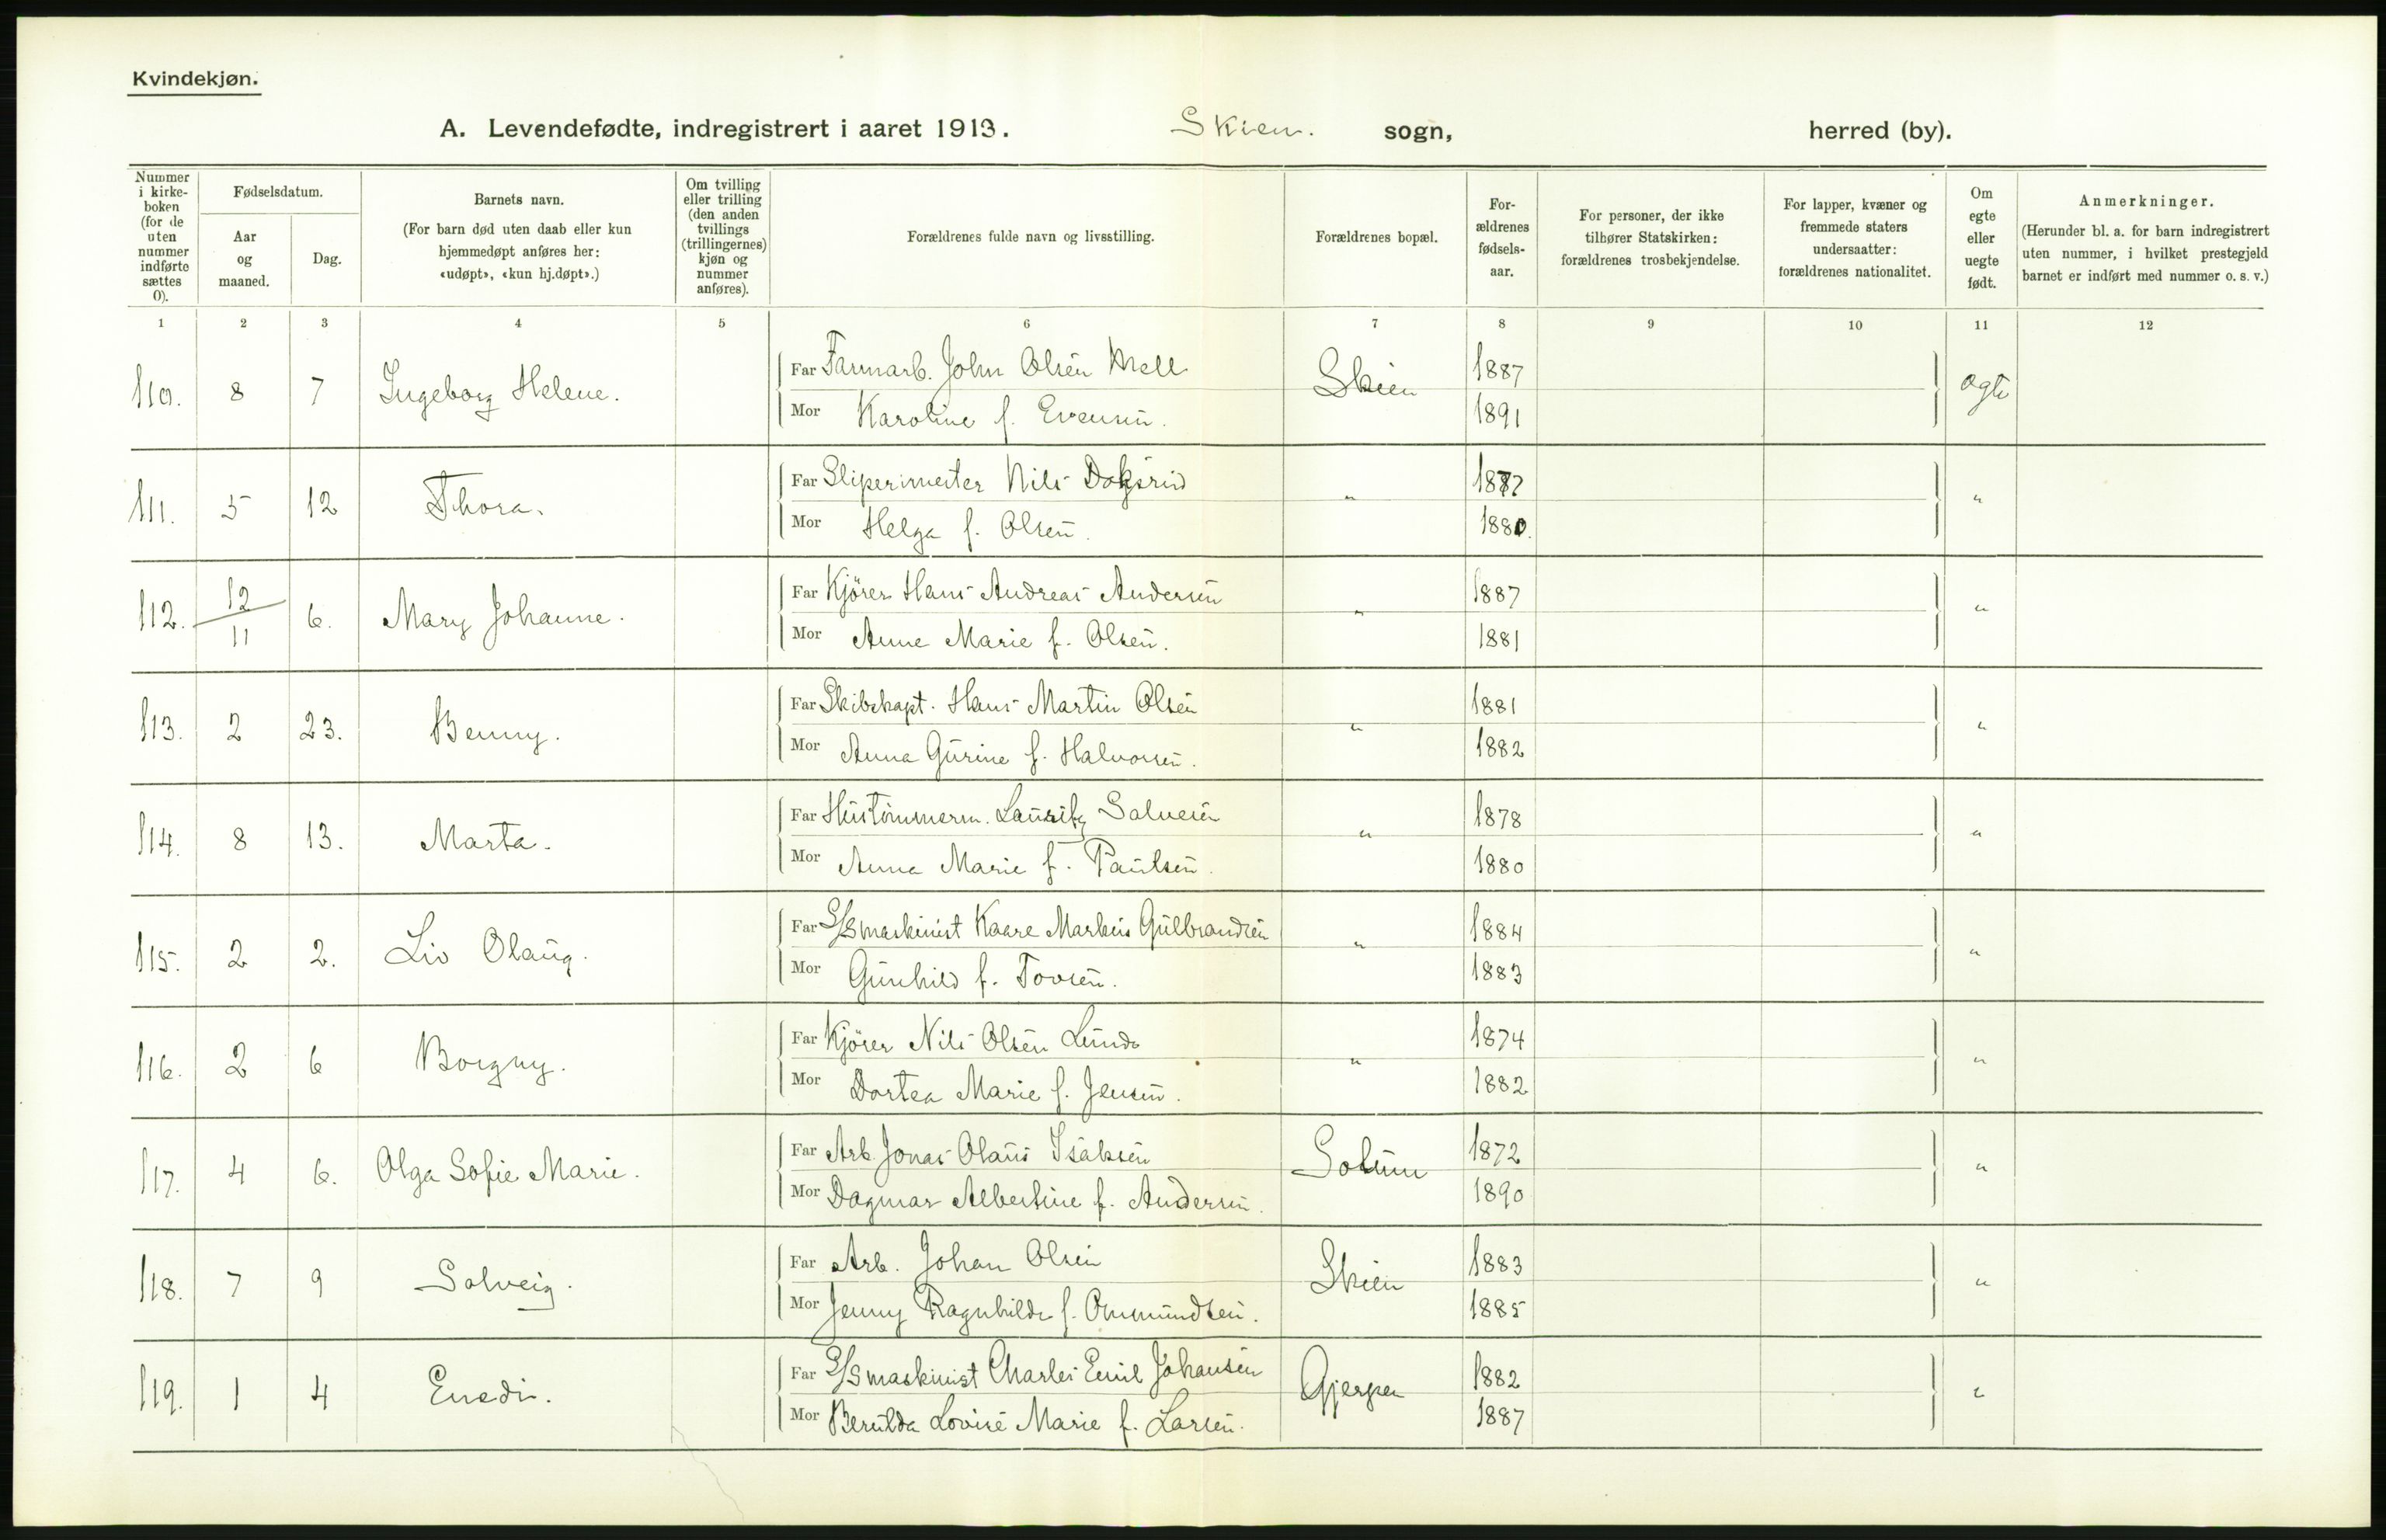 Kvindekjøn.
A. Levendefødte, indregistrert i aaret 1913. Skien. sogn, herred (by).
Nummer i kirke-boken (for de uten nummer indførte sættes 0).
Fødselsdatum.
Aar og maaned.
Dag.
Barnets navn.
(For barn død uten daab eller kun hjemmedøpt anføres her: «udøpt», «kun hj.døpt».)
Om tvilling eller trilling (den anden tvillings (trillingernes) kjøn og nummer anføres).
Forældrenes fulde navn og livsstilling.
Forældrenes bopæl.
For-ældrenes fødsels-aar.
For personer, der ikke tilhører Statskirken: forældrenes trosbekjendelse.
For lapper, kvæner og fremmede staters undersaatter: forældrenes nationalitet.
Om egte eller uegte født.
Anmerkninger.
(Herunder bl. a. for barn indregistrert uten nummer, i hvilket prestegjeld barnet er indført med nummer o. s. v.)
1 2 3 4 5 6 7 8 9 10 11 12
110. 8 7 Ingeborg Helene. Far John Olsen Skien 1887 egte
Mor Karoline f. Evensen. 1891
111. 5 12 Thora. Far Sliperimester Nils " "
Mor Helga f. Olsen. 1880.
112. 12/11 6. Mary Johanne. Far Kjörer Hans Andreas Andersen " 1887 "
Mor Anne Marie f. Olsen. 1881
113. 2 23. Benny. Far Skibskapt. Hans Martin Olsen " 1881 "
Mor Anna Gurine f. Halvorsen. 1882
114. 8 13. Marta. Far Hustömmerm. Lauritz Salvesen " 1878 "
Mor Anna Marie f. Paulsen. 1880
115. 2 2. Liv Olaug. Far S/S maskinist Kaare Markus Gulbrandsen " 1884 "
Mor Gunhild f. Tovsen. 1883
116. 2 6 Borgny. Far Kjörer Nils Olsen Lunde " 1874 "
Mor Dortea Marie f. Jensen. 1882
117. 4 6. Olga Sofie Marie. Far Arb. Jonas Olaus Isaksen Solum 1872 "
Mor Dagmar Albertine f. Andersen. 1890
118. 7 9 Solveig. Far Arb. Johan Olsen Skien 1883 "
Mor Jenny Ragnhilde f. Ommundsen. 1885
119. 1 4 Enedi. Far S/S maskinist Charles Emil Johansen Gjerpen 1882 "
Mor Berulda Lovise Marie f. Larsen. 1887